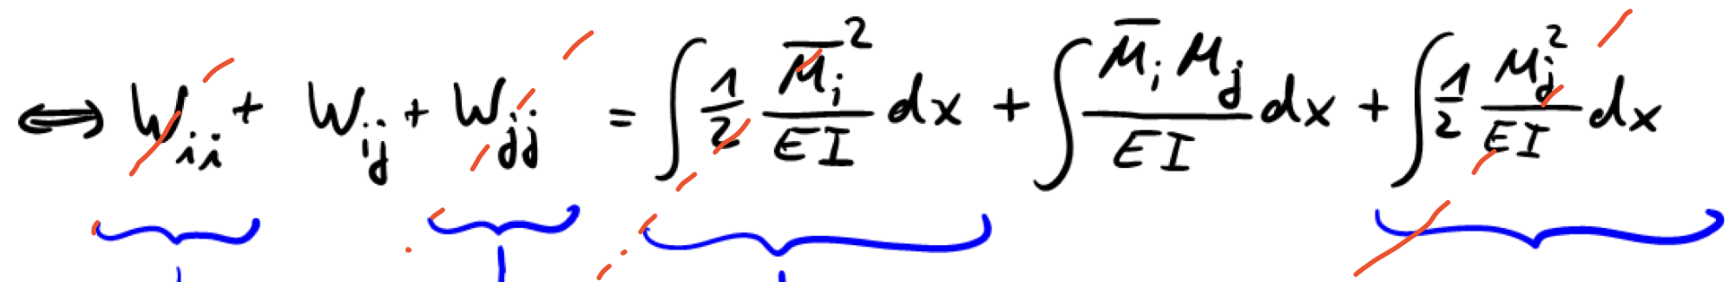 ⇔ W_{ii} + W_{ij} + W_{jj} = ∫ \frac{1}{2} \frac{\overline{M}_i^2}{EI} dx + ∫ \frac{\overline{M}_i M_j}{EI} dx + ∫ \frac{1}{2} \frac{M_j^2}{EI} dx